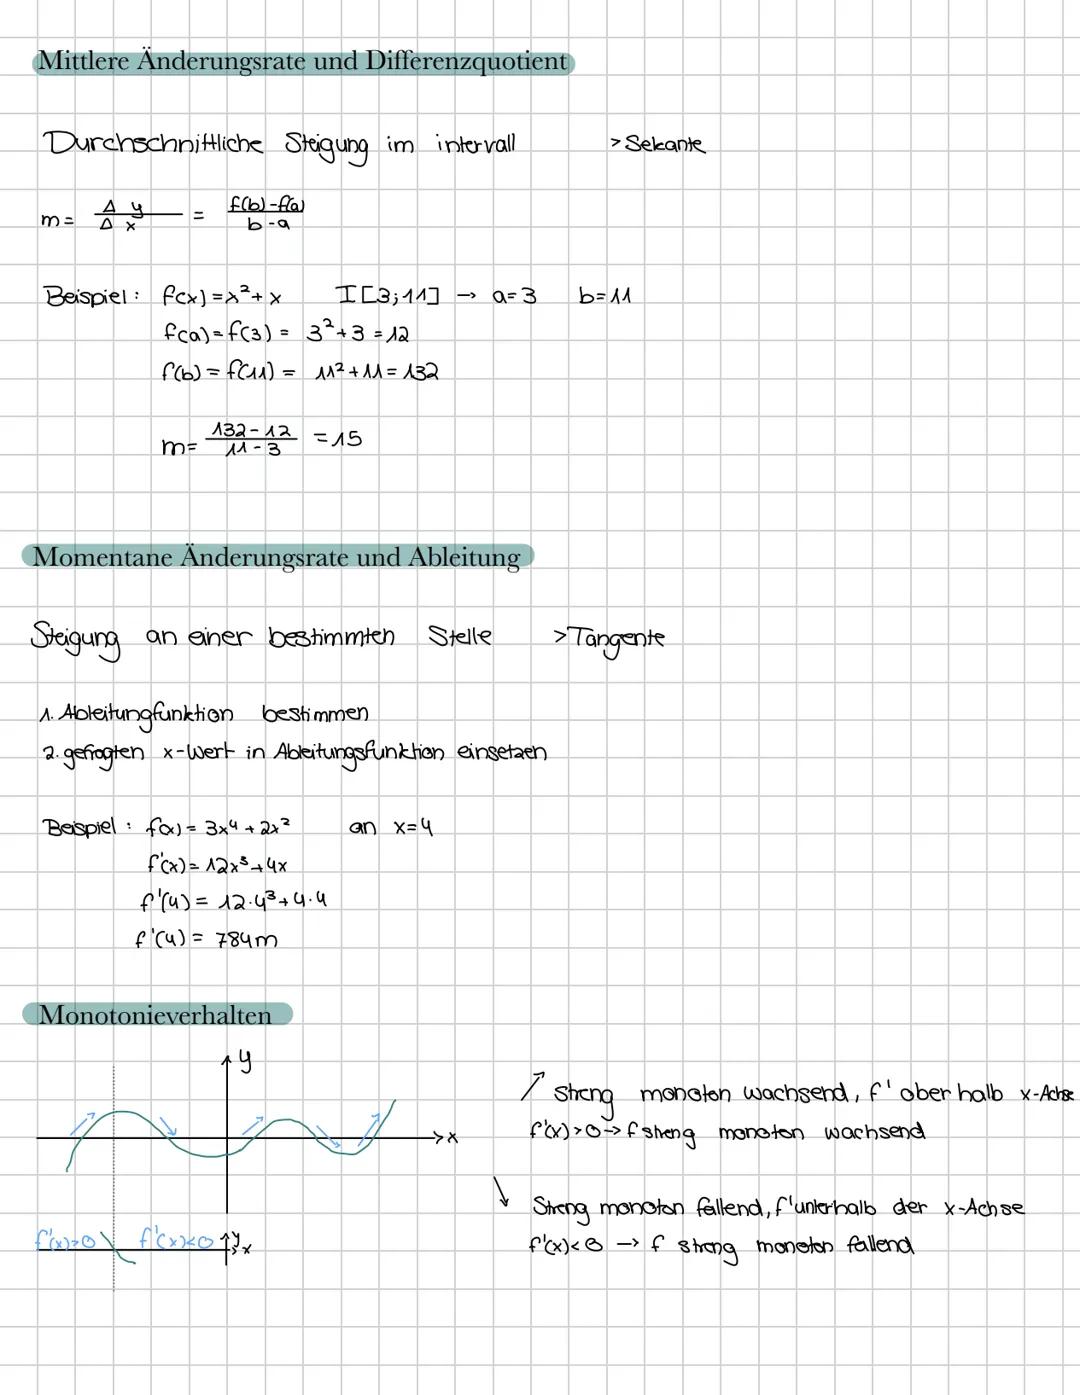 Mittlere Änderungsrate und Differenzquotient
Durchschnittliche Steigung im intervall > Sekante
m = Δ y / Δ x = f(b)-f(a) / b-a
Beispiel: f(x)=x²+x I[3;11] → a=3 b=11
f(a)=f(3) = 3²+3 =12
f(b) = f(11) = 11²+11=132
m= 132-12 / 11-3 =15
Momentane Änderungsrate und Ableitung
Steigung an einer bestimmten Stelle >Tangente
1. Ableitungfunktion bestimmen
2. gefragten x-Wert in Ableitungsfunktion einsetzen
Beispiel: f(x) = 3x⁴+2x² an x=4
f'(x) = 12x³+4x
f'(4) = 12·4³+4·4
f'(4) = 784m
Monotonieverhalten
y
x
↗ streng monoton wachsend, f' oberhalb x-Achse
f'(x)>0→f streng monoton wachsend
↘ Streng monoton fallend, f' unterhalb der x-Achse
f'(x)<0 → f streng monoton fallend
f'(x)>0 f'(x)<0 y x